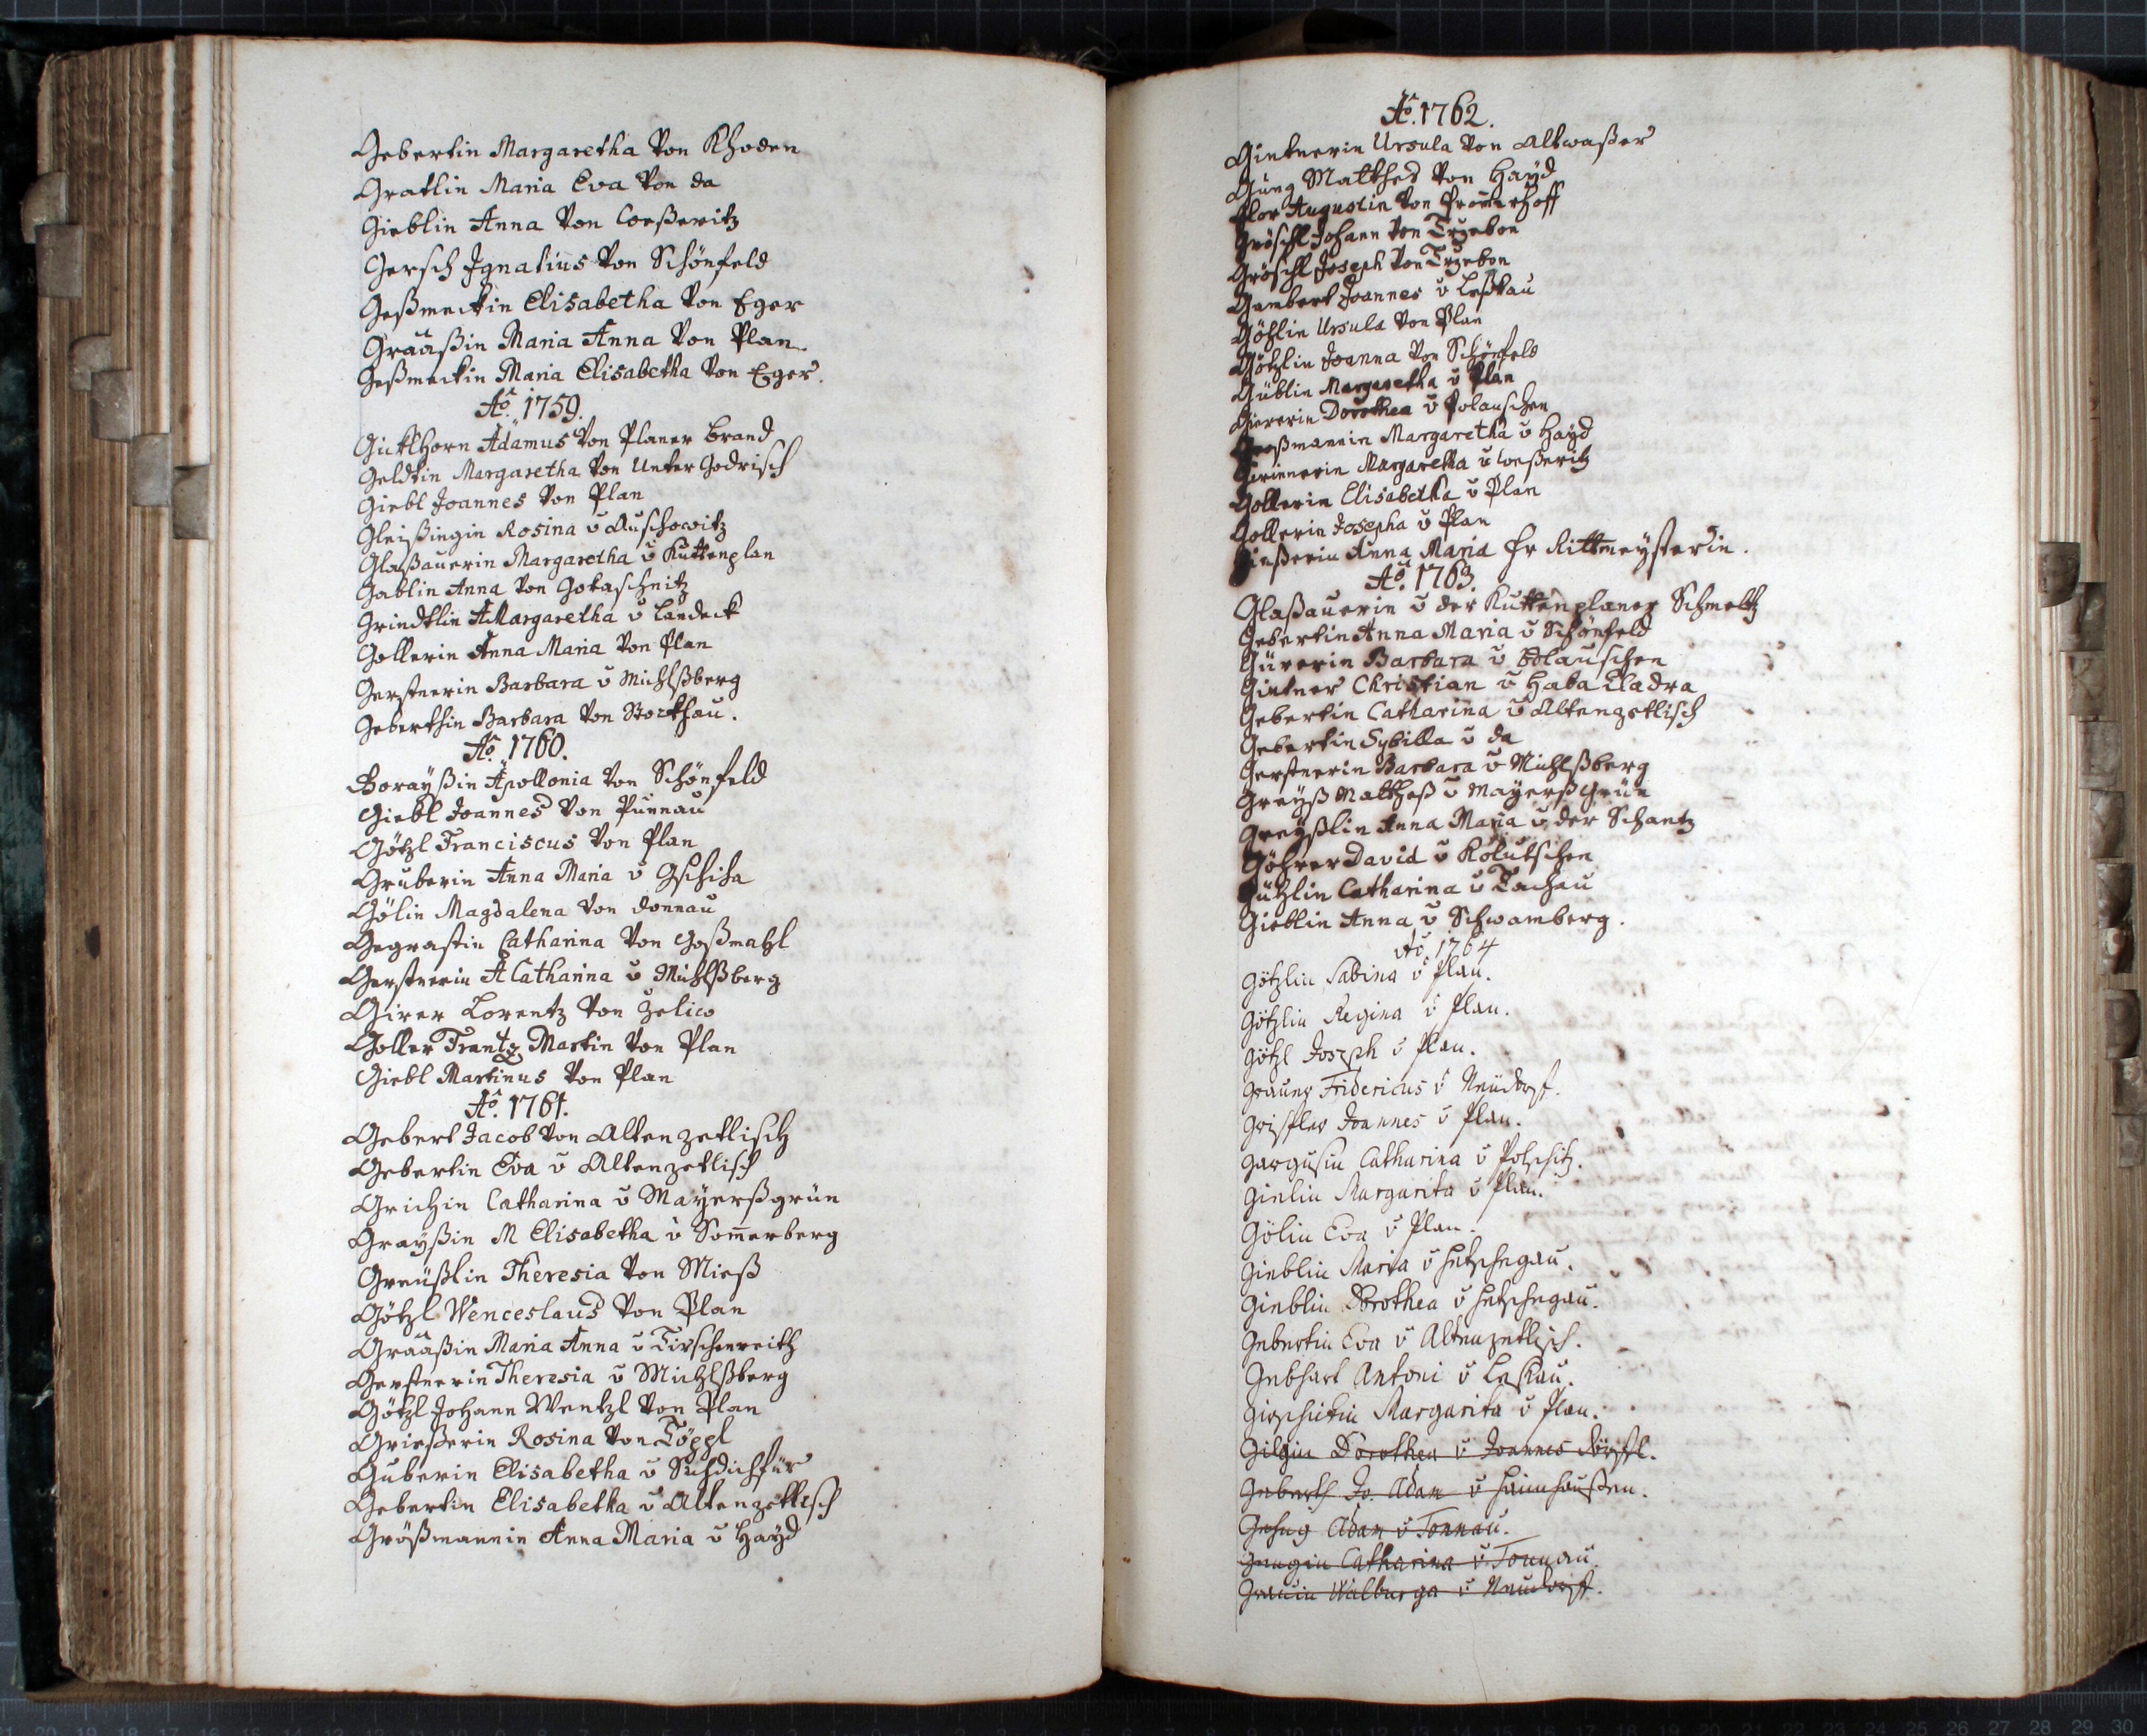 Gebertin Margaretha Von Khoden
Gratlin Maria Eva Von da
Gieblin Anna Von Coeßeritz
Gersch Ignatius Von Schönfeld
Geßmeckin Elisabetha Von Eger
Graaßin Maria Anna Von Plan
Geßmeckin Maria Elisabetha Von Eger.
Aõ. 1759.
Gutlhorn Adamus Von Planer brand
Geldtin Margaretha Von Unter Godrisch
Giebl Joannes Von Plan
Gleißingin Rosina v̄ Auschowitz
Glaßauerin Margaretha v̄ Kuttenplan
Gablin Anna Von Gokaschnitz
Grindtlin A Margaretha v̄ Landeck
Gollerin Anna Maria Von Plan
Gerstnerin Barbara v̄ Michlßberg
Geberthin Barbara Von Stockhau.
Aõ. 1760.
Borayßin Apollonia Von Schönfeld
Giebl Joannes Von Punnau
Götzl Franciscus Von Plan
Gruberin Anna Maria v̄ Gschiha
Gölin Magdalena Von Donnau
Gegrastin Catharina Von Goßmahl
Gerstnerin A Catharina v̄ Michlßberg
Girer Lorentz Von Zelico
Goller Frantz Martin Von Plan
Giebl Martinus Von Plan
Aõ. 1761.
Gebert Jacob Von Altenzetlisch
Gebertin Eva v̄ Altenzetlisch
Grichin Catharina v̄ Mayerßgrün
Grayßin M Elisabetha v̄ Som̄erberg
Greüßlin Theresia Von Mieß
Götzl Wenceslaus Von Plan
Graaßin Maria Anna v̄ Tirschenreith
Gerstnerin Theresia v̄ Michlßberg
Götzl Johann Wentzl Von Plan
Grießerin Rosina Von Töppl
Guberin Elisabetha v̄ Sichdichfür
Gebertin Elisabetha v̄ Altenzetlisch
Größmannin Anna Maria v̄ Hayd
Aõ. 1762.
Gintnerin Ursula Von Altwaßer
Gung Mathes Von Hayd
Augustin Von Prom̄erhoff
Gröschl Johann Von Trzebon
Gröschl Joseph Von Trzebon
Gembert Joannes v̄ Leßkau
Götzlin Ursula Von Plan
Götzlin Joanna Von Schönfeld
Güblin Margaretha v̄ Plan
Giererin Dorothea v̄ Polauschen
Großmannin Margaretha v̄ Hayd
Margaretha v̄ Coeßeritz
Gollerin Elisabetha v̄ Plan
Gollerin Josepha v̄ Plan
Anna Maria Fr Rittmeysterin.
Aõ. 1763.
Glaßauerin v̄ der Kuttenplaner Schmeltz
Gebertin Anna Maria v̄ Schönfeld
Gürerin Barbara v̄ Polauschen
Gintner Christian v̄ Haba Cladra
Gebertin Catharina v̄ Altenzetlisch
Gebertin Sybilla v̄ da
Gerstnerin Barbara v̄ Michlßberg
Greyß Matheß v̄ Mayerßgrün
Greyßlin Anna Maria v̄ der Schantz
Göhrer David v̄ Kolutschen
Catharina v̄ Tachau
Gieblin Anna v̄ Schwamberg.
Aõ. 1764
Götzlin Sabina v̄ Plan.
Götzlin Regina v̄ Plan.
Götzl Joseph v̄ Plan.
Grauner Fridericus v̄ Neüdorff.
Joannes v̄ Plan.
Gargusin Catharina v̄ Polschitz.
Gielin Margarita v̄ Plan.
Gölin Eva v̄ Plan.
Gieblin Maria v̄ Hetschegau.
Gieblin Dorothea v̄ Hetschegau.
Gebertin Eva v̄ Altenzetlisch.
Gebhart Antoni v̄ Leskau.
Margarita v̄ Plan.
Gilgin Dorothea v̄ Joannes dörffl.
Geberth Jo. Adam v̄ Heimhaußen.
Adam v̄ Tonnau.
Catharina v̄ Tonnau.
Walburga v̄ Neudorff.